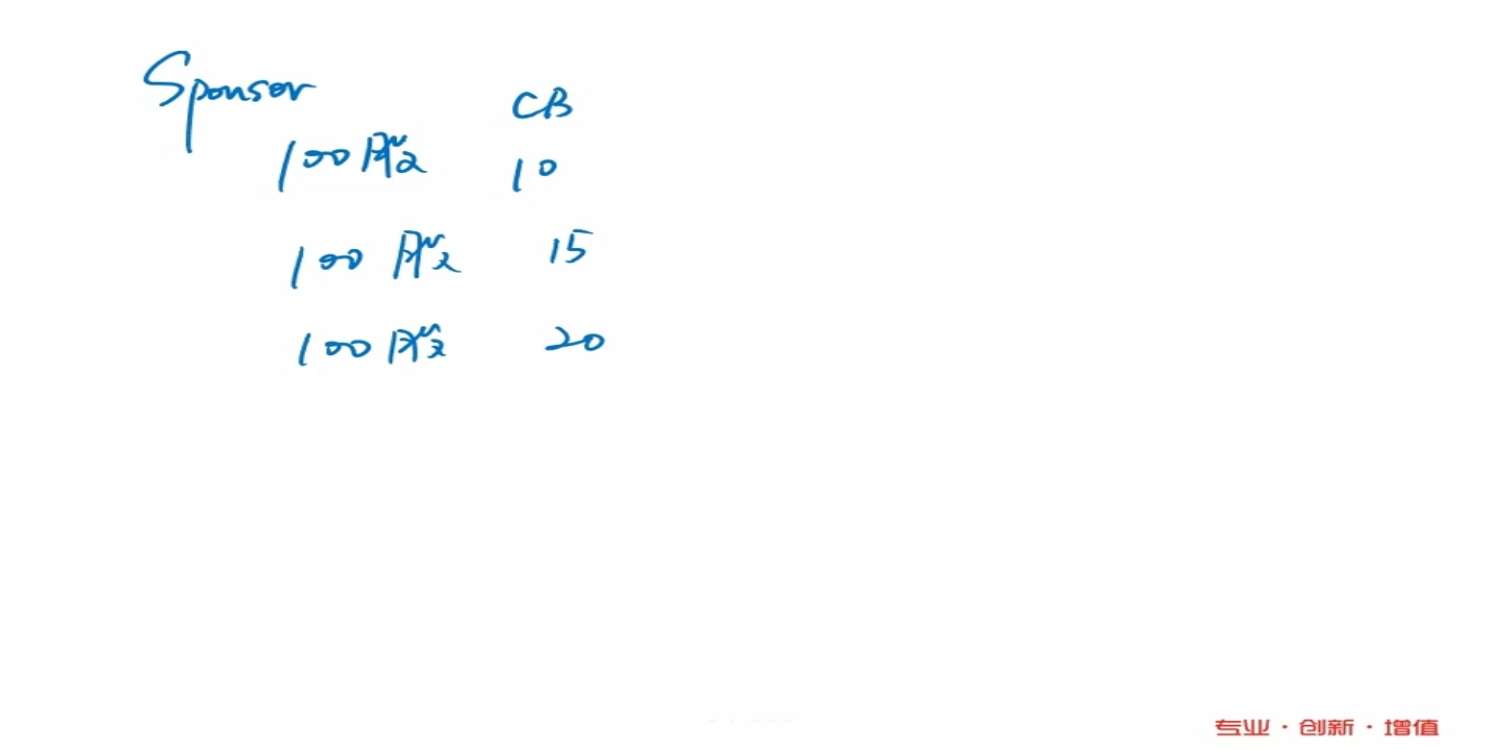 Sponsor
CB
100股 10
100股 15
100股 20
专业·创新·增值